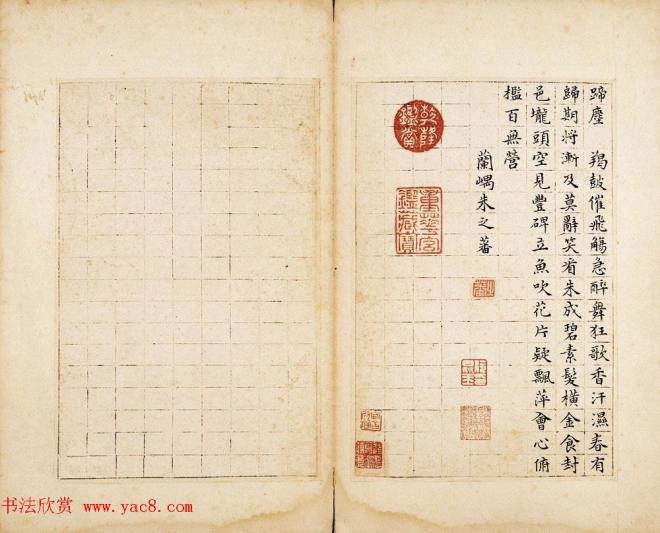 蹄塵　羯鼓催飛觴急醉舞狂歌香汗濕春有
歸期將漸及莫辭笑看朱成碧素髮橫金食封
邑壠頭空見豐碑立魚吹花片疑飄萍會心俯
檻百無營
蘭嵎朱之蕃
乾隆鑑賞
重華宮鑑藏寶
书法欣赏 www.yac8.com